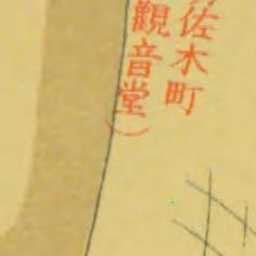 佐木町
觀音堂)